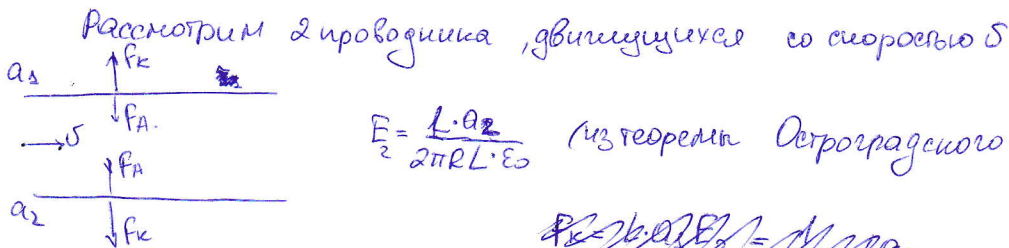 Рассмотрим 2 проводника, движущихся со скоростью υ
a₁ Fк
FA.
υ
E₂ = L·a₂ / 2πRL·ε₀ (из теоремы Остроградского
FA
a₂
Fк